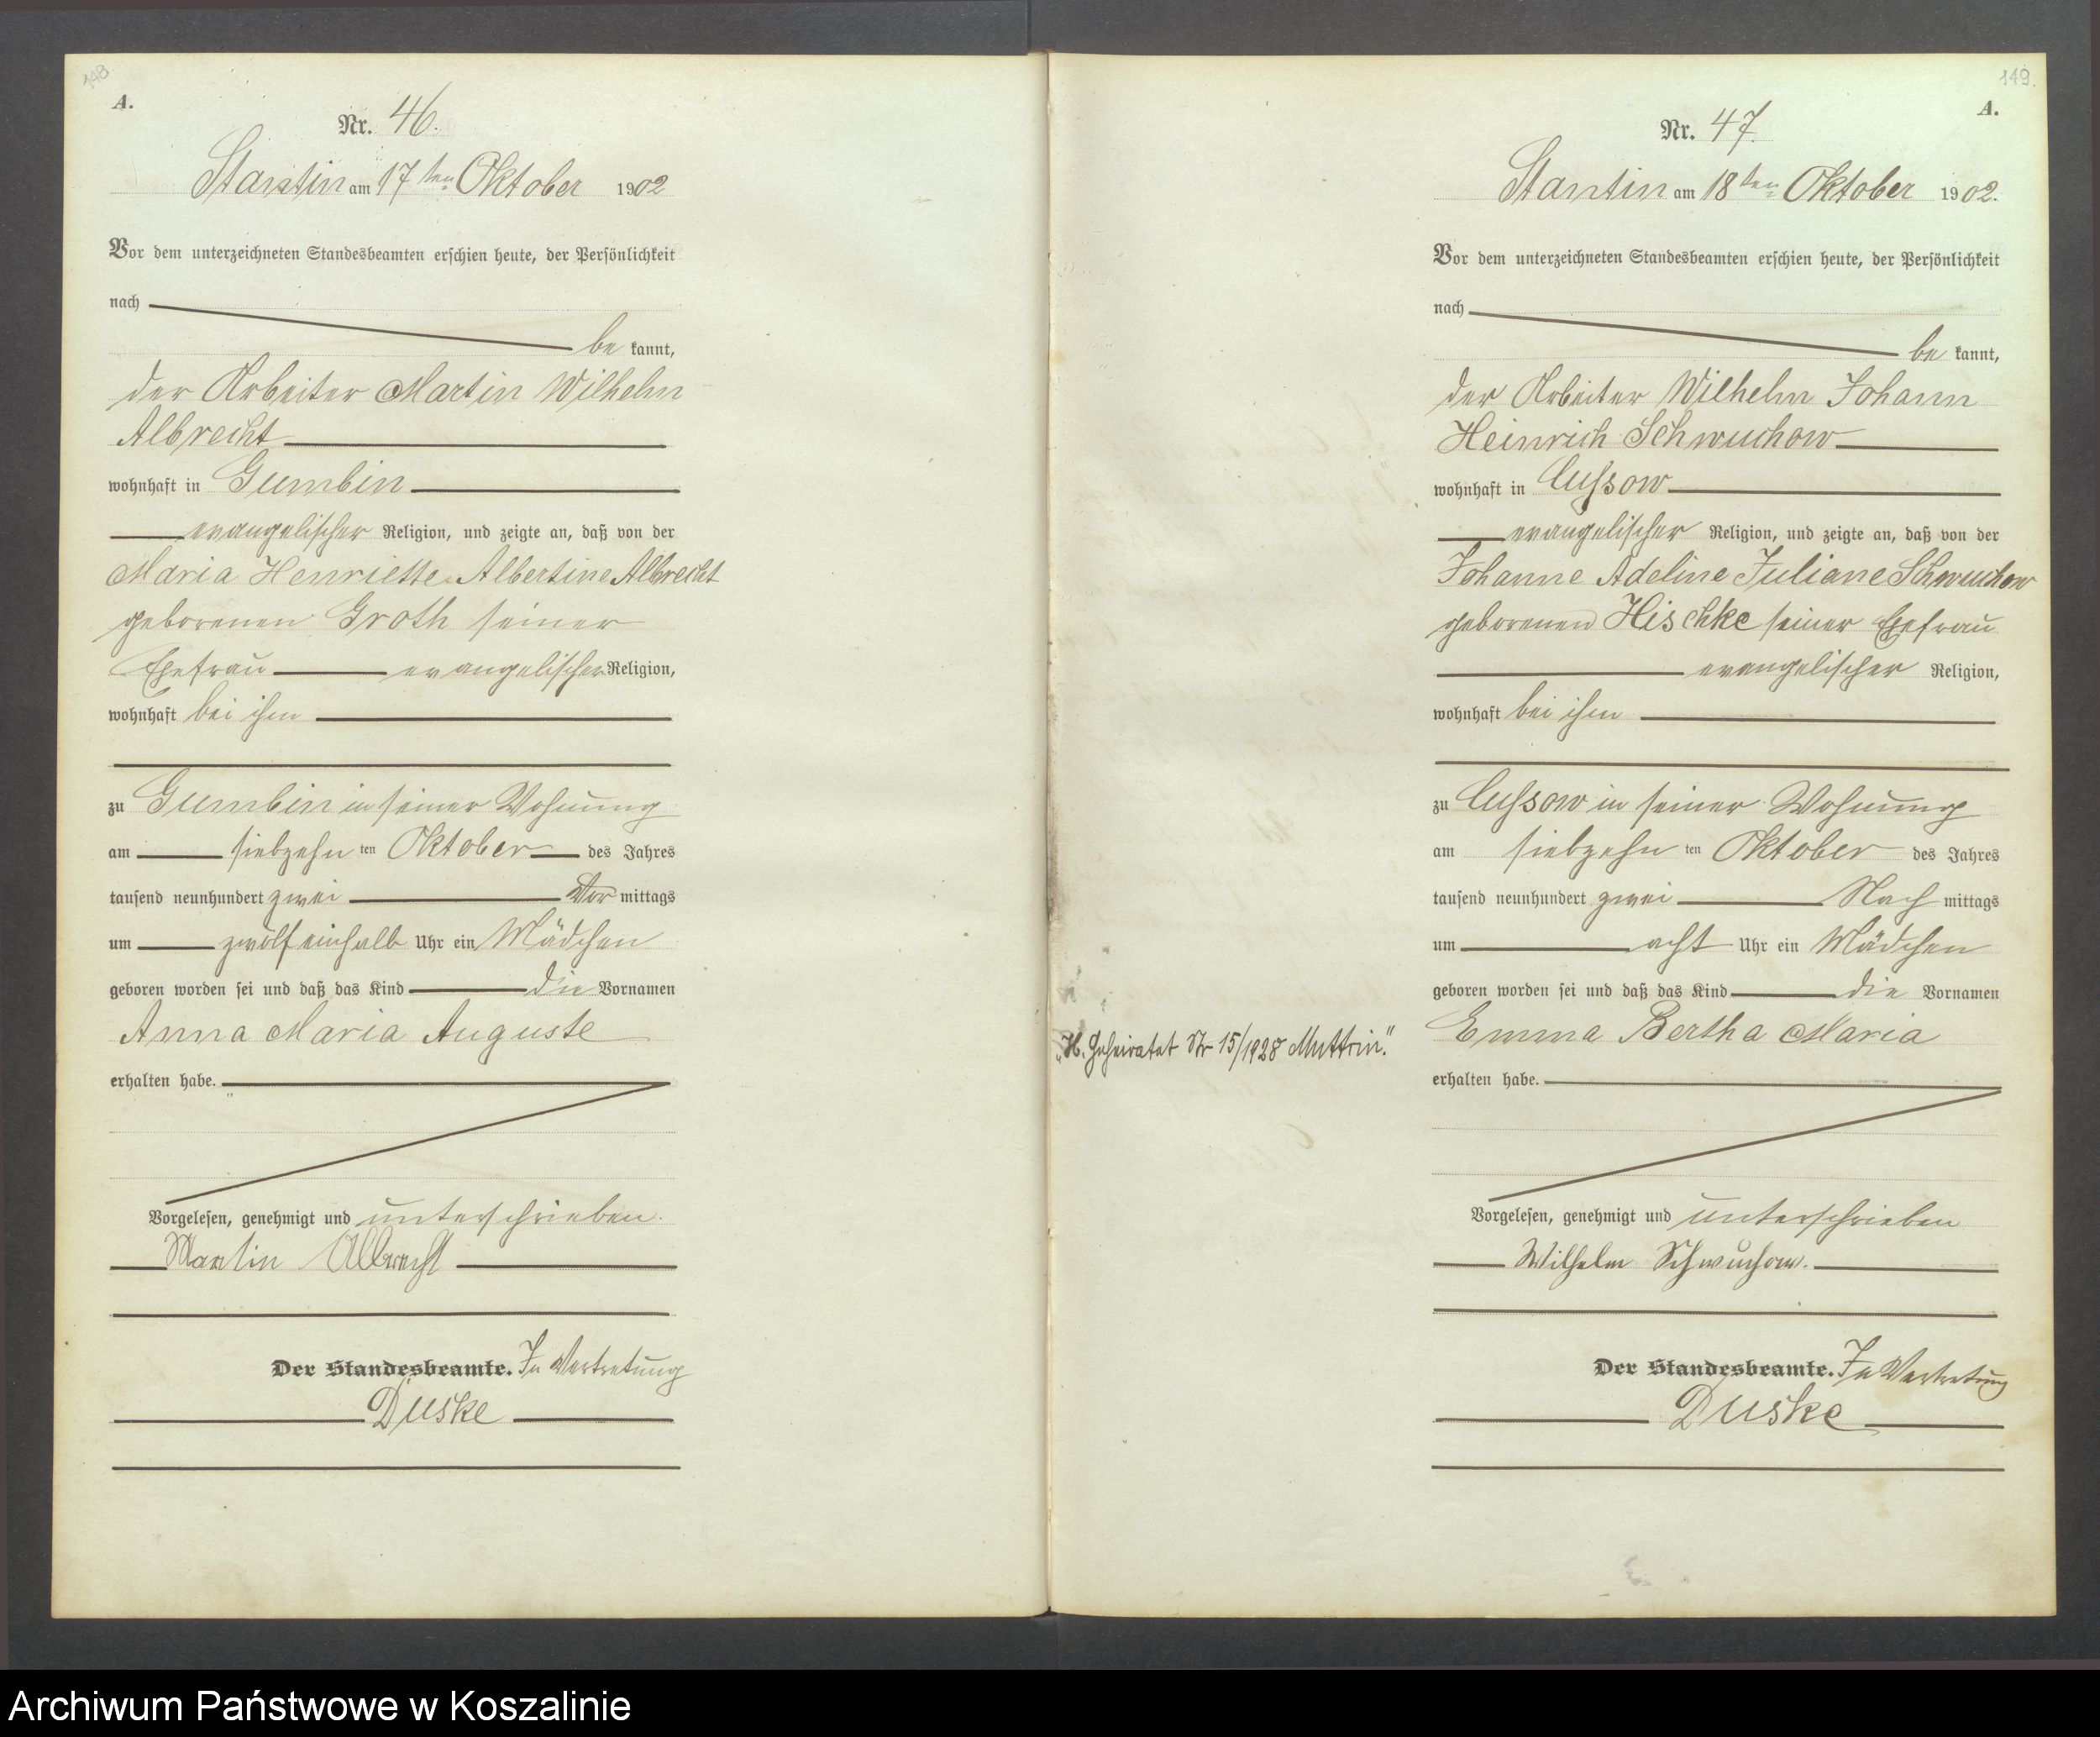 148
A.
Nr. 46.
Stantin am 17ten Oktober 1902
Vor dem unterzeichneten Standesbeamten erschien heute, der Persönlichkeit
nach
be kannt,
der Arbeiter Martin Wilhelm
Albrecht
wohnhaft in Gumbin
evangelischer Religion, und zeigte an, daß von der
Maria Henriette Albertine Albrecht
geborenen Groth seiner
Ehefrau evangelischer Religion,
wohnhaft bei ihm
zu Gumbin in seiner Wohnung
am siebzehn ten Oktober des Jahres
tausend neunhundert zwei Vor mittags
um zwölf einhalb Uhr ein Mädchen
geboren worden sei und daß das Kind die Vornamen
Anna Maria Auguste
erhalten habe.
Vorgelesen, genehmigt und unterschrieben.
Martin Albrecht
Der Standesbeamte. In Vertretung
Duske
149.
A.
Nr. 47.
Stantin am 18ten Oktober 1902.
Vor dem unterzeichneten Standesbeamten erschien heute, der Persönlichkeit
nach
be kannt,
der Arbeiter Wilhelm Johann
Heinrich Schwuchow
wohnhaft in Cussow
evangelischer Religion, und zeigte an, daß von der
Johanne Adeline Juliane Schwuchow
geborenen Hischke seiner Ehefrau
evangelischer Religion,
wohnhaft bei ihm
zu Cussow in seiner Wohnung
am siebzehn ten Oktober des Jahres
tausend neunhundert zwei Nach mittags
um acht Uhr ein Mädchen
geboren worden sei und daß das Kind die Vornamen
Emma Bertha Maria
„H. Geheiratet Nr 15/1928 Muttrin."
erhalten habe.
Vorgelesen, genehmigt und unterschrieben
Wilhelm Schwuchow.
Der Standesbeamte. In Vertretung
Duske
Archiwum Państwowe w Koszalinie